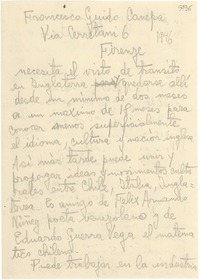 Francesca Guido Canepa
Via Cerretani 6
Firenze 1946
necesita el visto de tránsito
en Inglaterra quedarse allí
desde un minimo de dos meses
a un maximo de 18 meses para
conocer menos superficialmente
el idioma, cultura y nación inglesa
Asi mas tarde puede unir y
propagar ideas y movimientos cultu
rales entre Chile, Italia, Ingla-
terra. Es amigo de Felix Armando
Núñez poeta Venezolano y de
Eduardo Guerra Vega el matema
tico chileno.
Puede trabajar en la industria